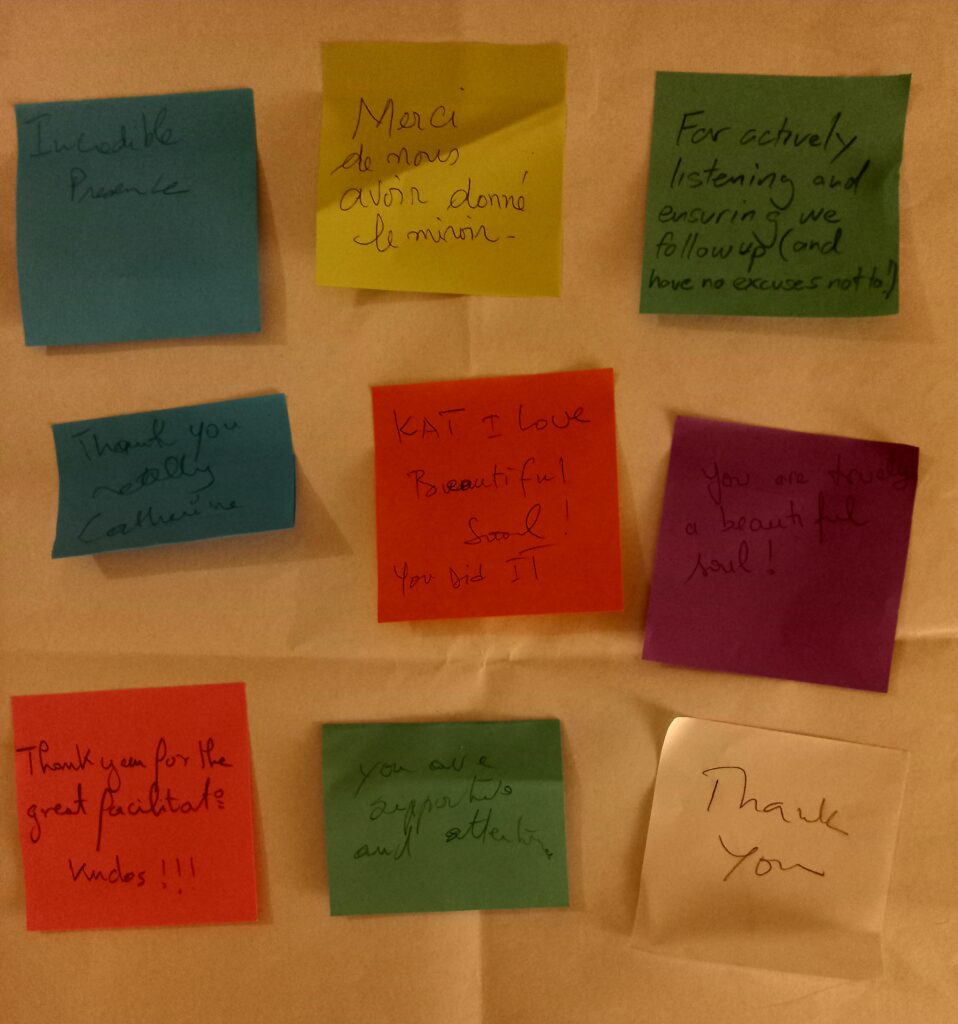 Incredible
Presence
Merci
de nous
avoir donné
le miroir.
For actively
listening and
ensuring we
follow up (and
have no excuses not to!)
Thank you
really
Catherine
KAT I Love
Beautiful
Soul!
You Did IT
You are truely
a beautiful
soul!
Thank you for the
great facilitat°
Kudos!!!
You are
supportive
and attentive
Thank
You